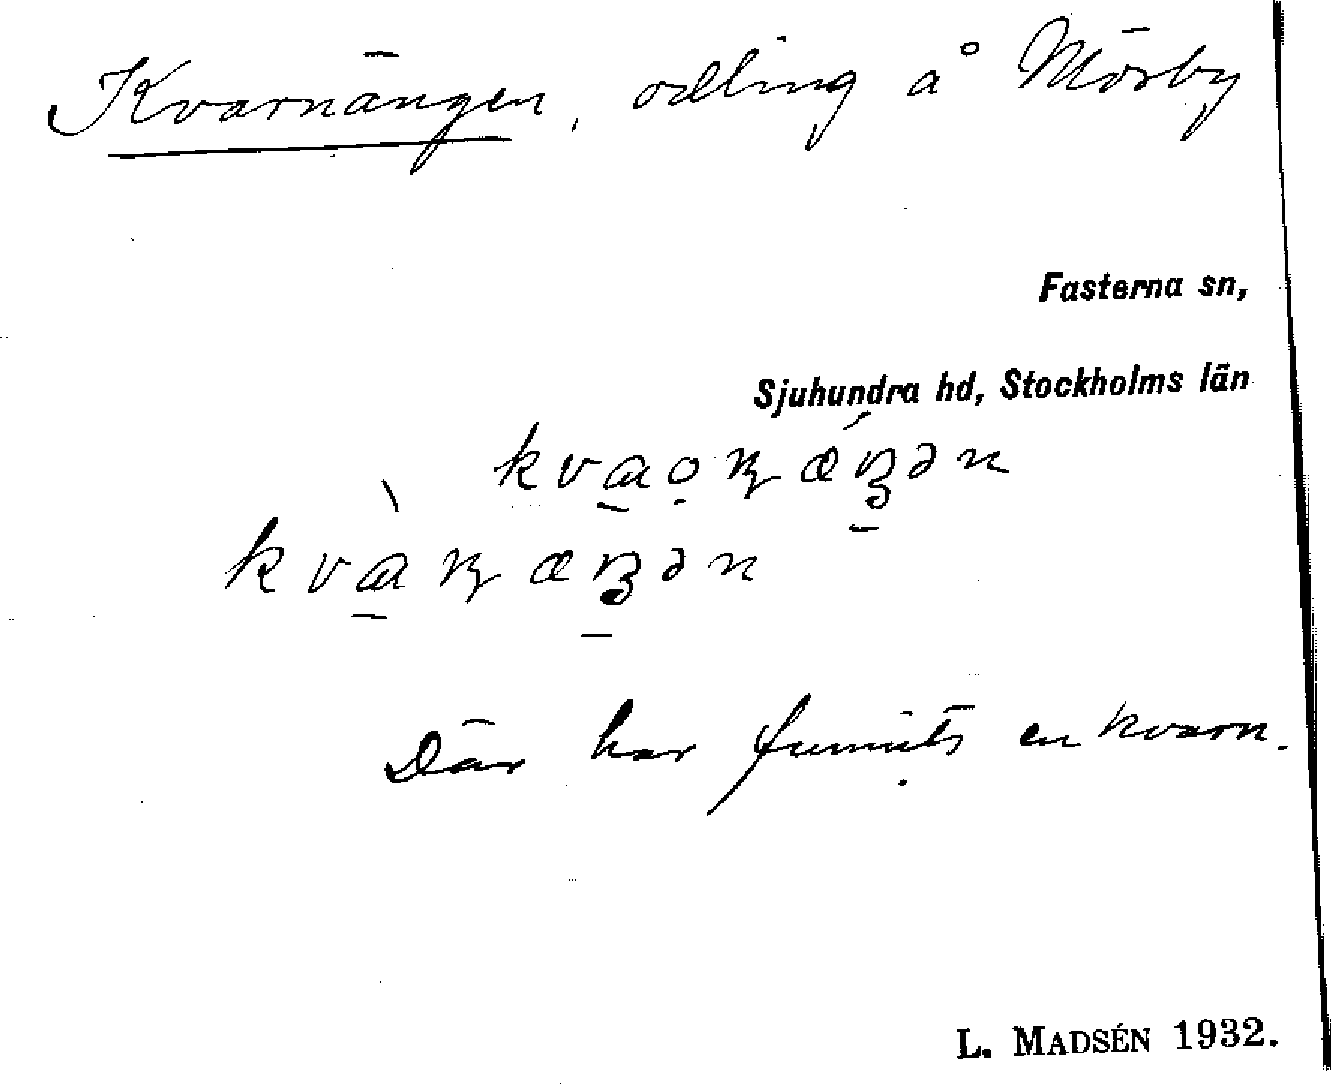 Kvarnängen, odling å Mörby
Fasterna sn,
Sjuhundra hd, Stockholms län
Där har funnits en kvarn.
L. MADSÉN 1932.